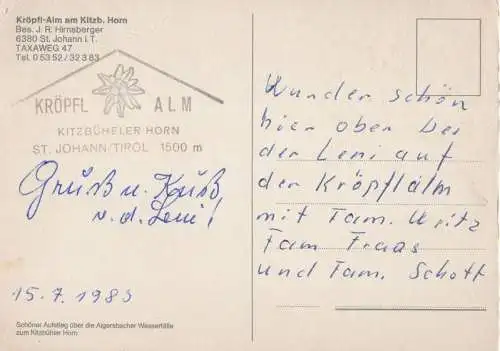 Kröpfl-Alm am Kitzb. Horn
Bes. J. R. Hirnsberger
6380 St. Johann i. T.
TAXAWEG 47
Tel. 0 53 52 / 32 3 83
KRÖPFL ALM
KITZBÜHELER HORN
ST. JOHANN/TIROL 1500 m
Gruß u. Kuß
v. d. Leni!
15.7.1983
Schöner Aufstieg über die Aigersbacher Wasserfälle
zum Kitzbühler Horn
Wunder schön
hier oben bei
der Leni auf
der Kröpflalm
mit Fam.
Fam Fraas
und Fam. Schott